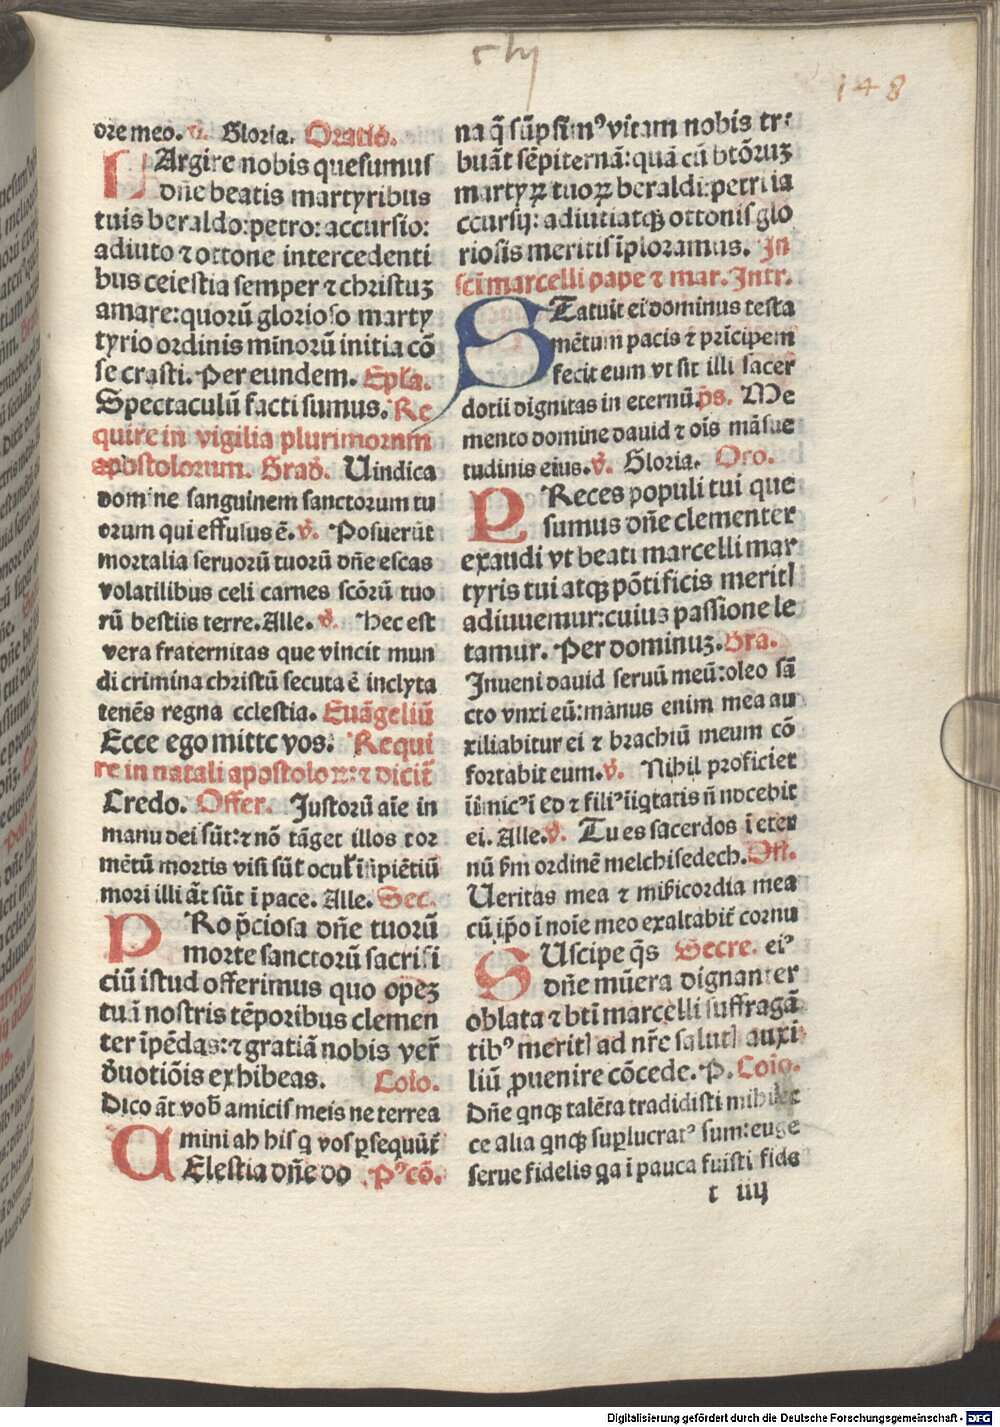 clij
148
ore meo. v̄. Gloria. Oratio.
LArgire nobis quesumus
dn̄e beatis martyribus
tuis beraldo: petro: accursio:
adiuto ⁊ ottone intercedenti
bus celestia semper ⁊ christuꝫ
amare: quorū glorioso marty
tyrio ordinis minorū initia cō
se crasti. Per eundem. Epl̄a.
Spectaculū facti sumus. Re
quire in vigilia plurimorum
apostolorum. Grad̄. Uindica
domine sanguinem sanctorum tu
orum qui effusus ē. v̄. Posuerūt
mortalia seruorū tuorū dn̄e escas
volatilibus celi carnes scōrū tuo
rū bestiis terre. Alle. v̄. Hec est
vera fraternitas que vincit mun
di crimina christū secuta ē inclyta
tenēs regna celestia. Euāgeliū
Ecce ego mitto vos. Requi
re in natali apostoloꝝ: ⁊ dicit̄
Credo. Offer. Justorū aīe in
manu dei sūt: ⁊ nō tāget illos tor
mētū mortis visi sūt ocul' īsipiētiū
mori illi āt sūt ī pace. Alle. Sec.
PRo p̄ciosa dn̄e tuorū
morte sanctorū sacrifi
ciū istud offerimus quo opeꝫ
tuā nostris tēporibus clemen
ter īpēdas: ⁊ gratiā nobis ver̄
d̄uotiōis exhibeas. Coīo.
Dico āt vob̄ amicis meis ne terrea
mini ab his q̄ vos ꝑsequūt̄
CElestia dn̄e do Pꝰcō.
na q̄ sūpsimꝰ vitam nobis tri
buāt sēpiternā: quā cū btōruꝫ
martyꝝ tuoꝝ beraldi: petri: a
ccursij: adiutiatqꝫ ottonis glo
riosis meritis īploramus. In
scī marcelli pape ⁊ mar. Intr.
STatuit ei dominus testa
mētum pacis ⁊ prīcipem
fecit eum vt sit illi sacer
dotii dignitas in eternū. ps. Me
mento domine dauid ⁊ oīs māsue
tudinis eius. v̄. Gloria. Oro.
PReces populi tui que
sumus dn̄e clementer
exaudi vt beati marcelli mar
tyris tui atqꝫ pōtificis meritꝭ
adiuuemur: cuius passione le
tamur. Per dominuꝫ. Gra.
Inueni dauid seruū meū: oleo sā
cto vnxi eū: manus enim mea au
xiliabitur ei ⁊ brachiū meum cō
fortabit eum. v̄. Nihil proficiet
inimicꝰ ī eo ⁊ filiꝰ iniq̄tatis n̄ nocebit
ei. Alle. v̄. Tu es sacerdos ī eter
nū ẜm ordinē melchisedech. Off.
Ueritas mea ⁊ miẜicordia mea
cū ip̄o ī noīe meo exaltabit̄ cornu
SUscipe q̄s Secre. eiꝰ
dn̄e mūera dignanter
oblata ⁊ btī marcelli suffragā
tibꝰ meritꝭ ad nr̄e salutꝭ auxi
liū ꝓuenire cōcede. P. Coīo.
Dn̄e qnqꝫ talēta tradidisti mihi ec
ce alia qnqꝫ suꝑlucratꝰ sum: euge
serue fidelis qa ī pauca fuisti fide
t iiij
Digitalisierung gefördert durch die Deutsche Forschungsgemeinschaft - DFG